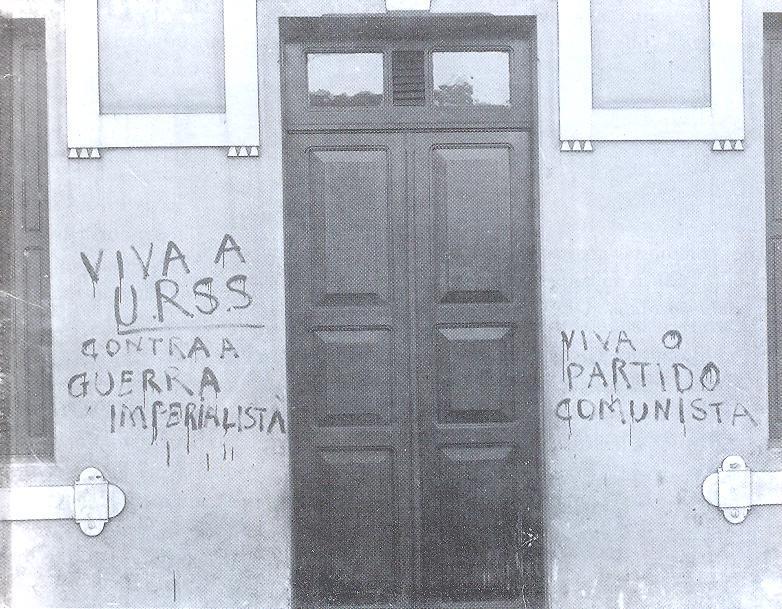 VIVA A
U.R.S.S
CONTRA A
GUERRA
IMPERIALISTA
VIVA O
PARTIDO
COMUNISTA